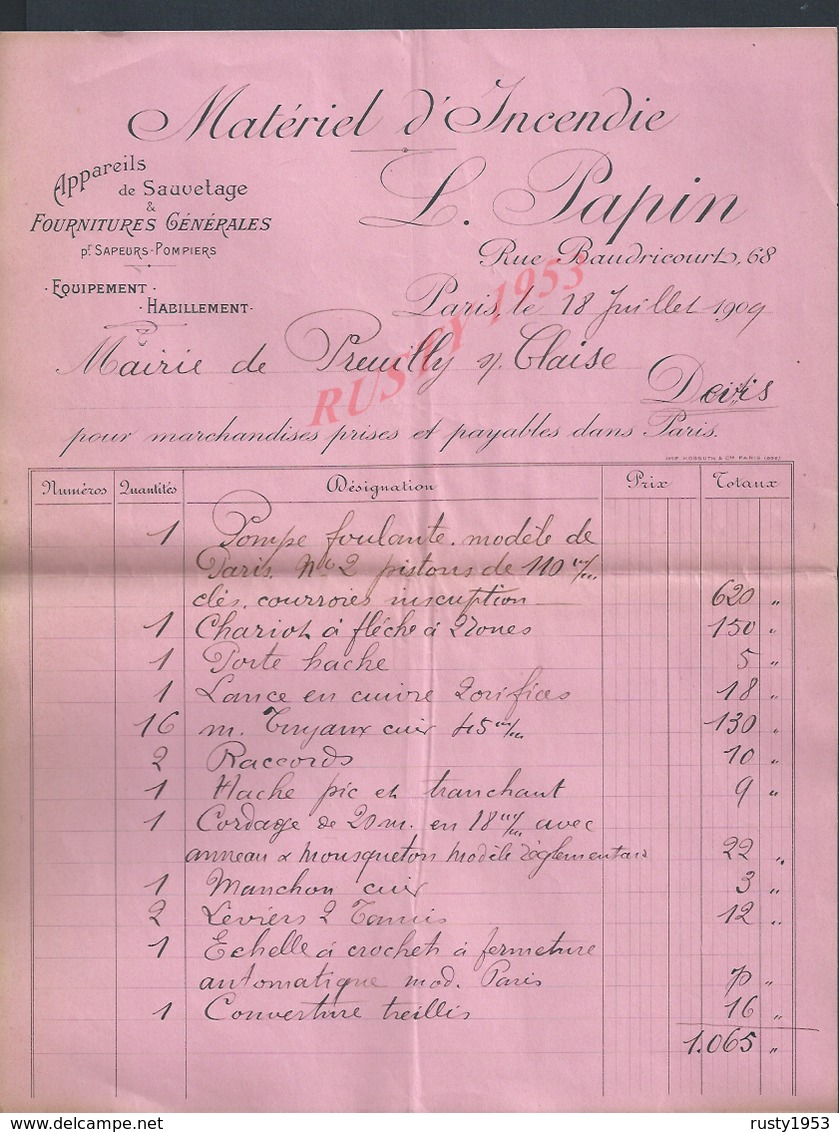 Matériel d'Incendie
Appareils
de Sauvetage
&
FOURNITURES GÉNÉRALES
pr SAPEURS-POMPIERS
L. Papin
Rue Baudricourt, 68
EQUIPEMENT
HABILLEMENT
Paris, le 18 Juillet 1909
RUSTY 1953
Mairie de Preuilly s/ Claise
Devis
pour marchandises prises et payables dans Paris.
Numéros Quantités Désignation Prix Totaux
1 Pompe foulante. modèle de
Paris. No 2 pistons de 110 m/m
clés. courroies inscription 620 "
1 Chariot à flèche à 2 roues 150 "
1 Porte hache 5 "
1 Lance en cuivre 2 orifices 18 "
16 m. Tuyaux cuir 45 m/m 130 "
2 Raccords 10 "
1 Hache pic et tranchant 9 "
1 Cordage de 20 m. en 18 m/m avec
anneau & mousqueton modèle réglementaire 22 "
1 Manchon cuir 3 "
2 Leviers 2 Tamis 12 "
1 Echelle à crochets à fermeture
automatique mod. Paris 70 "
1 Couverture treillis 16 "
1.065 "
www.delcampe.net
rusty1953